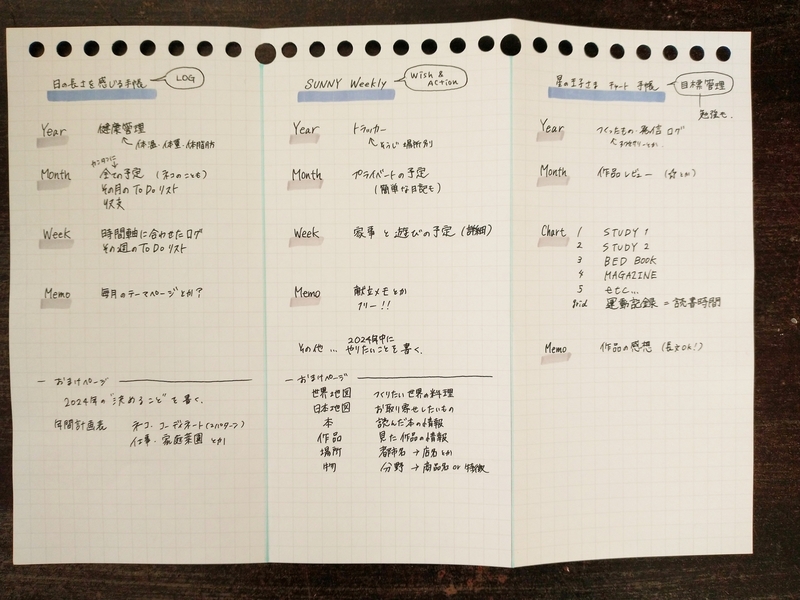 日の長さを感じる手帳
LOG
Year 健康管理
体温・体重・体脂肪
かんたんに
Month 全ての予定 (ネコのことも)
その月の To Do リスト
収支
Week 時間軸に合わせたログ
その週の To Do リスト
Memo 毎月のテーマページとか?
おまけページ
2024年の"決めること"を書く。
年間計画表 ネコ・コーディネート(2パターン)
仕事・家庭菜園 とか
SUNNY Weekly
Wish & Action
Year トラッカー
そうじ場所別
Month プライベートの予定
(簡単な日記も)
Week 家事と遊びの予定(詳細)
Memo 献立メモとか
フリー!!
その他... 2024年中に
やりたいことを書く。
おまけページ
世界地図 つくりたい世界の料理
日本地図 お取り寄せしたいもの
本 読んだ本の情報
作品 見た作品の情報
場所 都市名 → 店名とか
物 分野 → 商品名 or 特徴
星の王子さま チャート 手帳
目標管理
勉強も。
Year つくったもの 発信 ログ
Month 作品レビュー (☆とか)
Chart 1 STUDY 1
2 STUDY 2
3 BED BOOK
4 MAGAZINE
5 etc...
grid 運動記録 = 読書時間
Memo 作品の感想 (長文OK!)